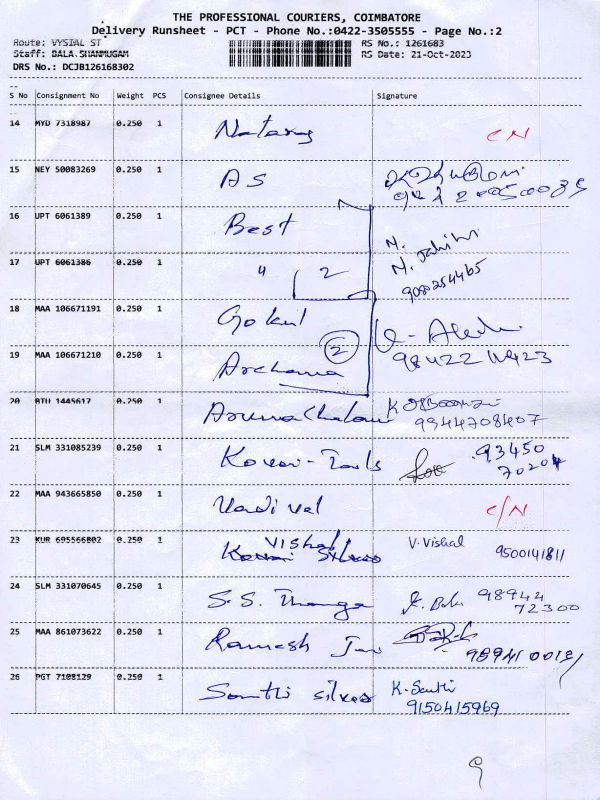 THE PROFESSIONAL COURIERS, COIMBATORE
Delivery Runsheet - PCT - Phone No.:0422-3505555 - Page No.:2
Route: VYSIAL ST RS No.: 1261683
Staff: BALA.SHANMUGAM RS Date: 21-Oct-2023
DRS No.: DCJB126168302
S No Consignment No Weight PCS Consignee Details Signature
14 MYD 7318987 0.250 1 Nataraj CN
15 NEY 50083269 0.250 1 AS
16 UPT 6061389 0.250 1 Best N.
17 UPT 6061386 0.250 1 " 2 N.
9080254465
18 MAA 106671191 0.250 1 Gokul
19 MAA 106671210 0.250 1 Archana 2
20 BTU 1445617 0.250 1 Arunachalam K
9344708407
21 SLM 331085239 0.250 1 Kovai-Tools 93450
70204
22 MAA 943665850 0.250 1 Vadivel C/N
23 KUR 695566802 0.250 1 Vishal V. Vishal 9500141811
24 SLM 331070645 0.250 1 S.S. Thanga 98944
72300
25 MAA 861073622 0.250 1 Ramesh
26 PGT 7108129 0.250 1 Santhi silves K. Santhi
9150415969
9